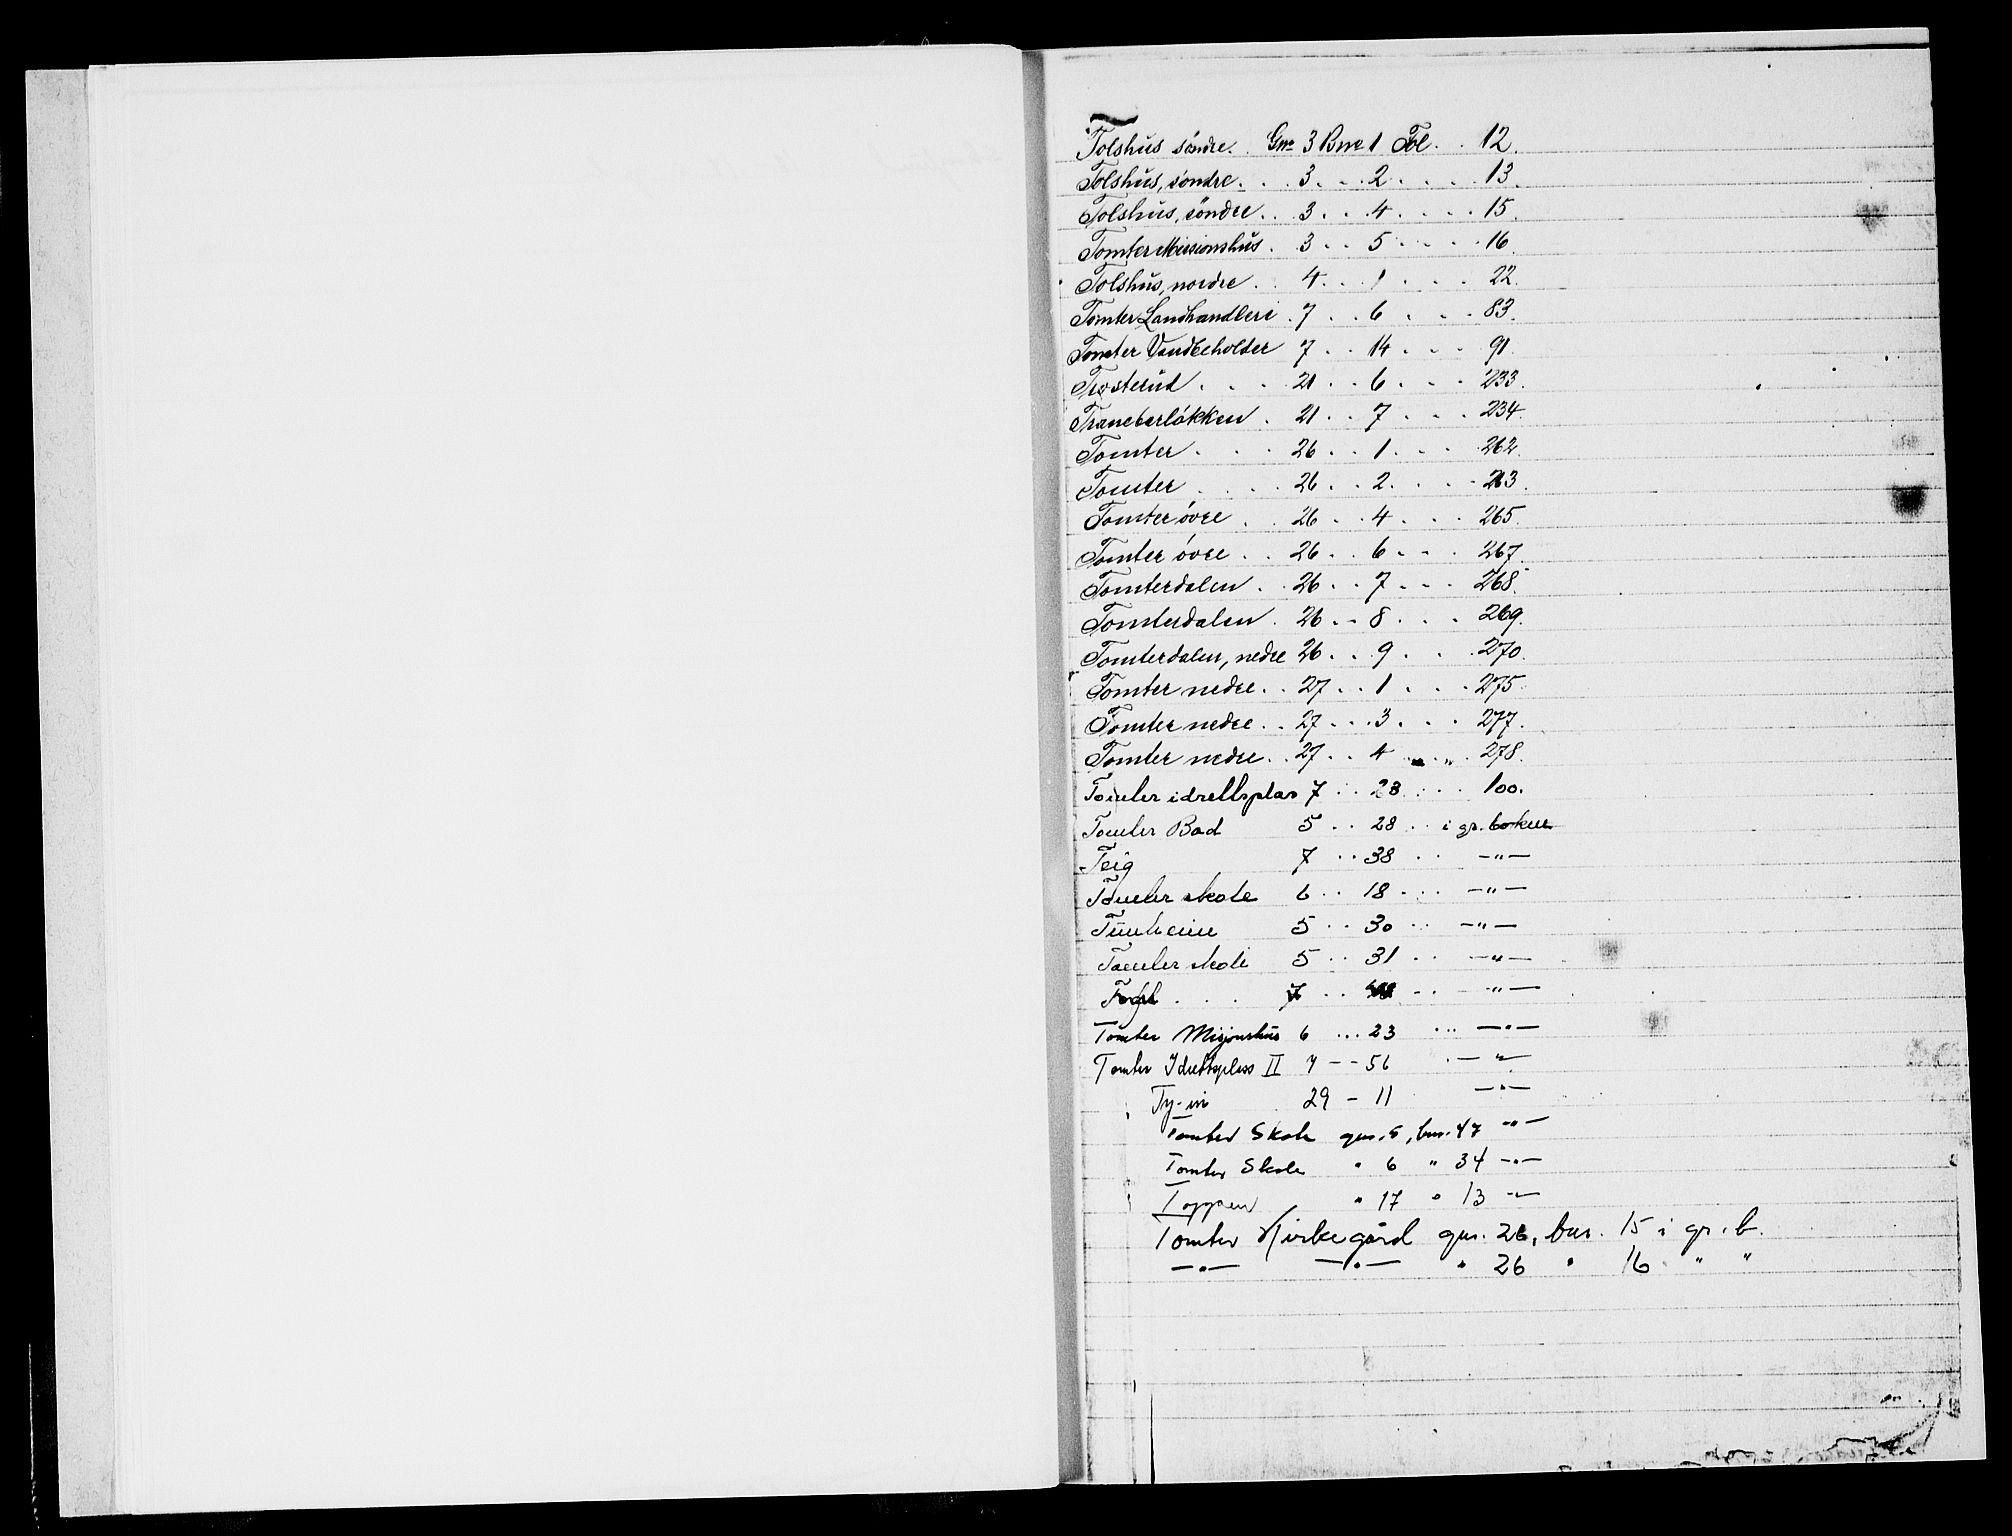 Tolshus söndre. . Gno 3 Bno 1 Fol. . 12.
Tolshus, söndre. . . 3. . . 2 . . . . 13.
Tolshus, söndre . . 3 . . 4 . . . . 15.
Tomter Missionshus . 3 . . 5 . . . . 16.
Tolshus, nordre . . 4 . . 1 . . . 22.
Tomter Landhandleri . 7 . . 6 . . . 83.
Tomter Vandbeholder 7 . . 14 . . . 91.
Trosterud . . . . 21 . . 6 . . . 233.
Tranebærlökken . 21 . . 7 . . . 234.
Tomter . . . 26 . . 1 . . . 262.
Tomter . . . . 26 . . 2 . . . . 263.
Tomter övre . . 26 . . 4 . . . 265.
Tomter övre . . 26 . . 6 . . . 267.
Tomterdalen . . 26 . . 7 . . . 268.
Tomterdalen . 26 . . 8 . . . 269.
Tomterdalen, nedre 26 . . 9 . . . 270.
Tomter nedre . . 27 . . 1 . . . 275.
Tomter nedre . . 27 . . . 3 . . . 277.
Tomter nedre . . 27 . . 4 . . „ . 278.
Tomter idrettsplas 7 . . 28 . . . 100.
Tomter Bad 5 . . 28 . . i gr. boken
Teig 7 . . 38 . . —"—
Tomter skole 6 . . 18 . . . —"—
Tunheim 5 . . 30 . . —"—
Tomter skole 5 . . 31 . . —"—
. . . 7 . . . . —"—
Tomter Misjonshus 6 . . . 23 . . . —"—
Tomter Idrettsplass II 7 - - 56 . —"—
Ty-in 29 - 11 —"—
Tomter Skole gnr. 5, bnr. 47 —"—
Tomter Skole " 6 " 34 —"—
Toppen " 17 " 13 —"—
Tomter Kirkegård gnr. 26, bnr. 15 i gr. b.
—"— —"— " 26 " 16 " "